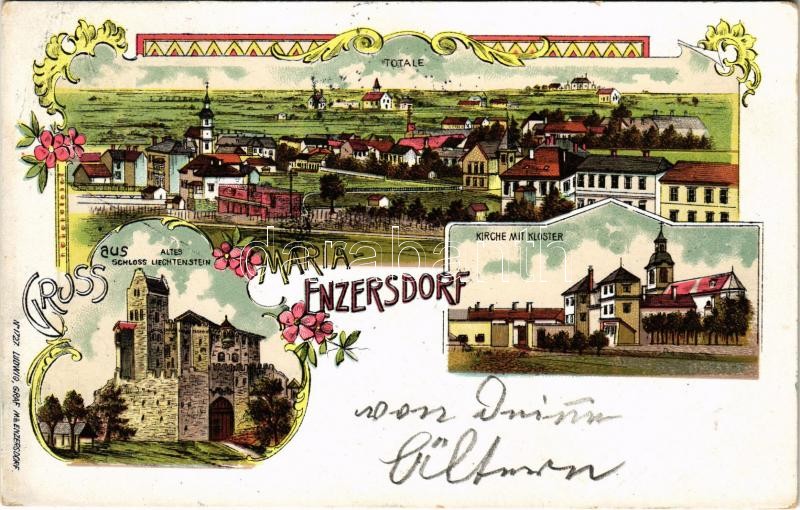 TOTALE
GRUSS aus
ALTES
SCHLOSS LIECHTENSTEIN
MARIA-
ENZERSDORF
KIRCHE MIT KLOSTER
No 1727. LUDWIG, GRAF M.ENZERSDORF.
von Deinen
Ältern
darabanth.com